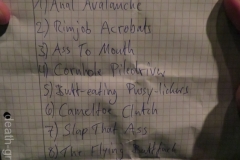 1) Anal Avalanche
2) Rimjob Acrobats
3) Ass To Mouth
4) Cornhole Piledriver
5) Butt-eating Pussy-lickers
6) Cameltoe Clutch
7) Slap That Ass
8) The Flying Buttfuck